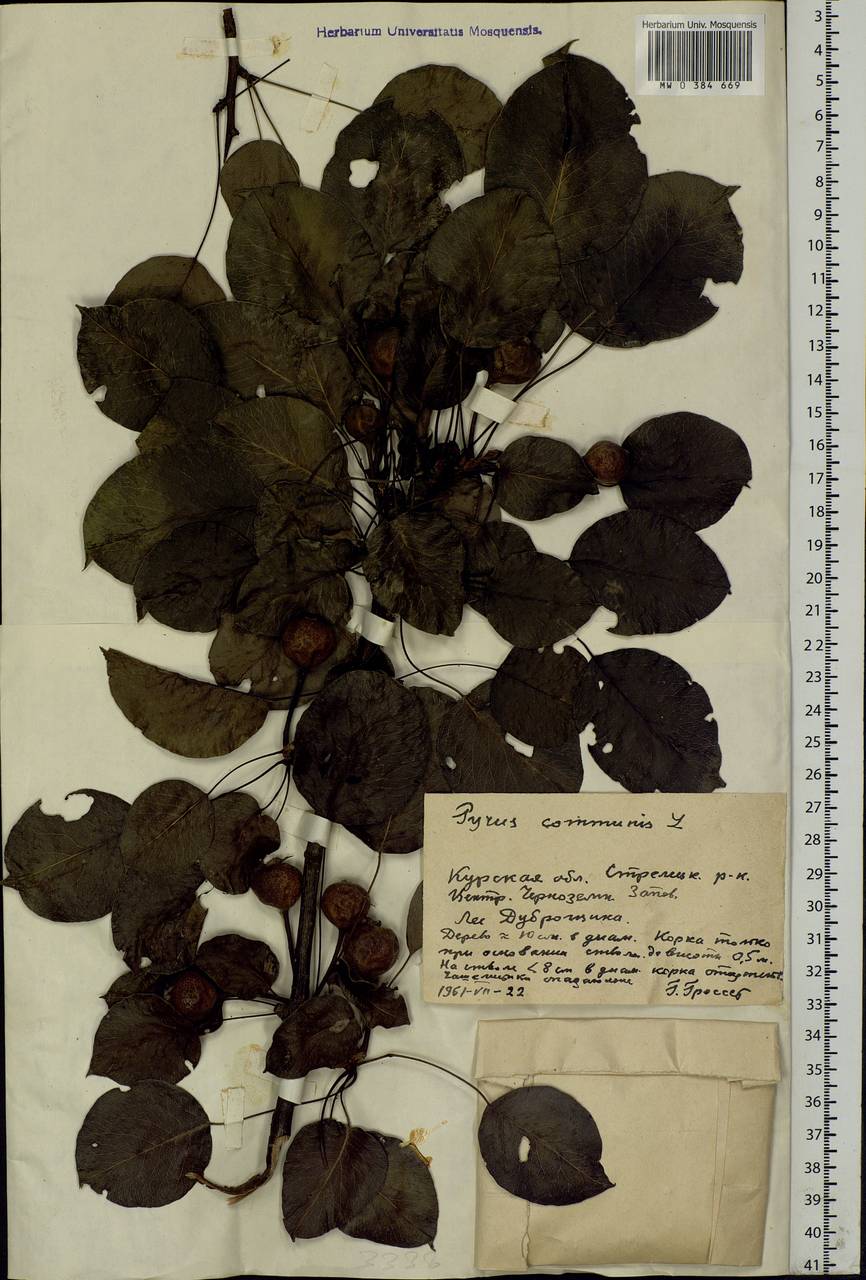 Herbarium Universitatis Mosquensis.
Herbarium Univ. Mosquensis
MW 0 384 669
Pyrus communis L
Курская обл. Стрелецк. р-н.
Центр. Черноземн. Запов.
Лес Дуброшина.
Дерево ≈ 10 см. в диам. Корка только
при основании ствола до высоты 0,5 м.
На стволе < 8 см в диам. корка отсутств.
Чашелистики опадающие
1961-VII-22 Г. Гроссет
3338
3
4
5
6
7
8
9
10
11
12
13
14
15
16
17
18
19
20
21
22
23
24
25
26
27
28
29
30
31
32
33
34
35
36
37
38
39
40
41